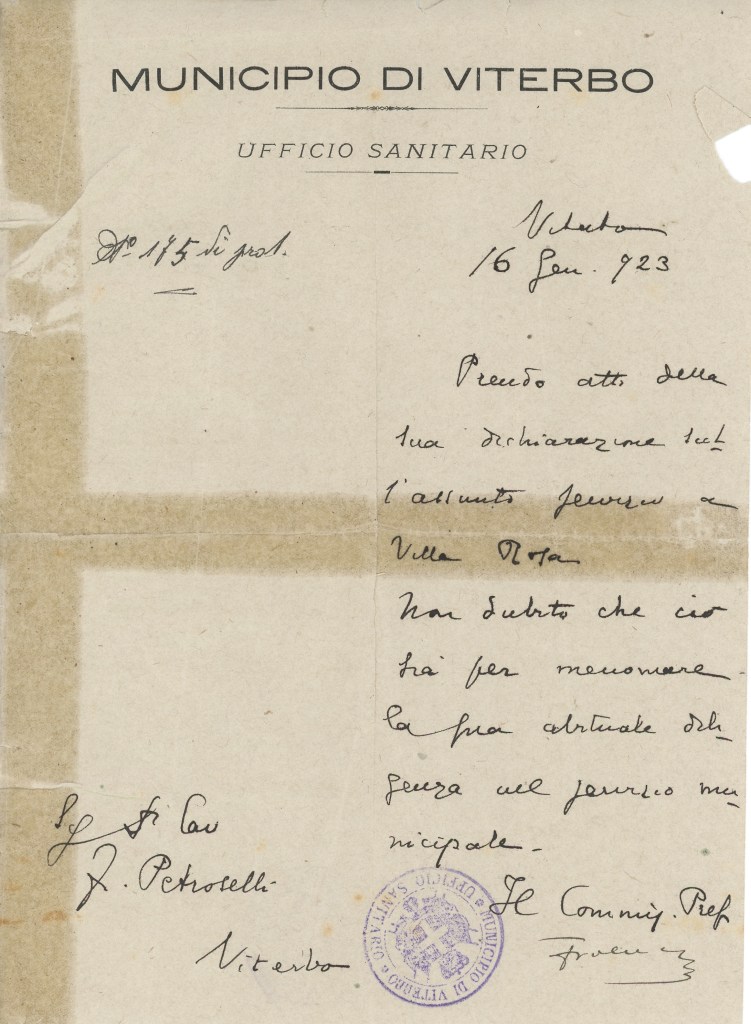 MUNICIPIO DI VITERBO
UFFICIO SANITARIO
Viterbo
16 Gen. 923
N.º 175 di prot.
Prendo atto della
sua dichiarazione sul-
l'assunto servizio a
Villa Rosa
Non dubito che ciò
sia per menomare
la sua abituale dili-
genza nel servizio mu-
nicipale.
Il Commiss. Pref
Sg Dr Cav
F. Petroselli
Viterbo
MUNICIPIO DI VITERBO
UFFICIO SANITARIO